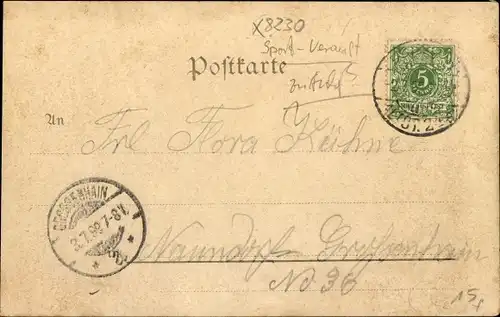 X8230
Sport-Veranst
Postkarte
5
An
Frl Flora Kühne
GROSSENHAIN
8.7.98.7-8V.
Naundorf Großenhain
No 36
15,